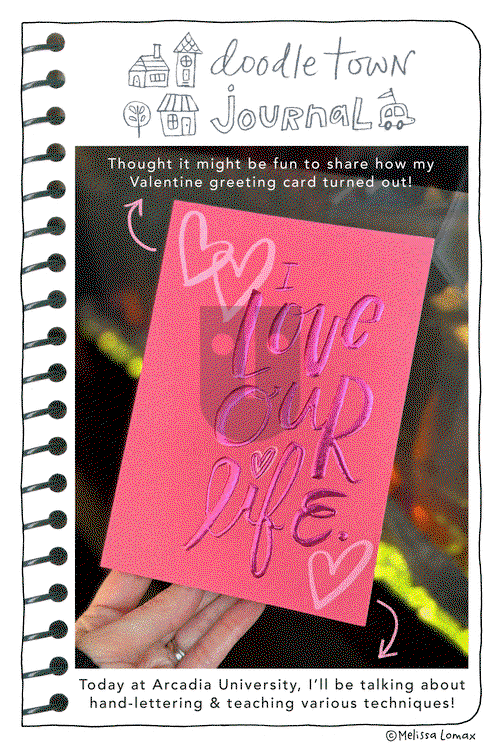 doodle town
journal
Thought it might be fun to share how my
Valentine greeting card turned out!
I
LOVE
OUR
life.
Today at Arcadia University, I'll be talking about
hand-lettering & teaching various techniques!
©Melissa Lomax